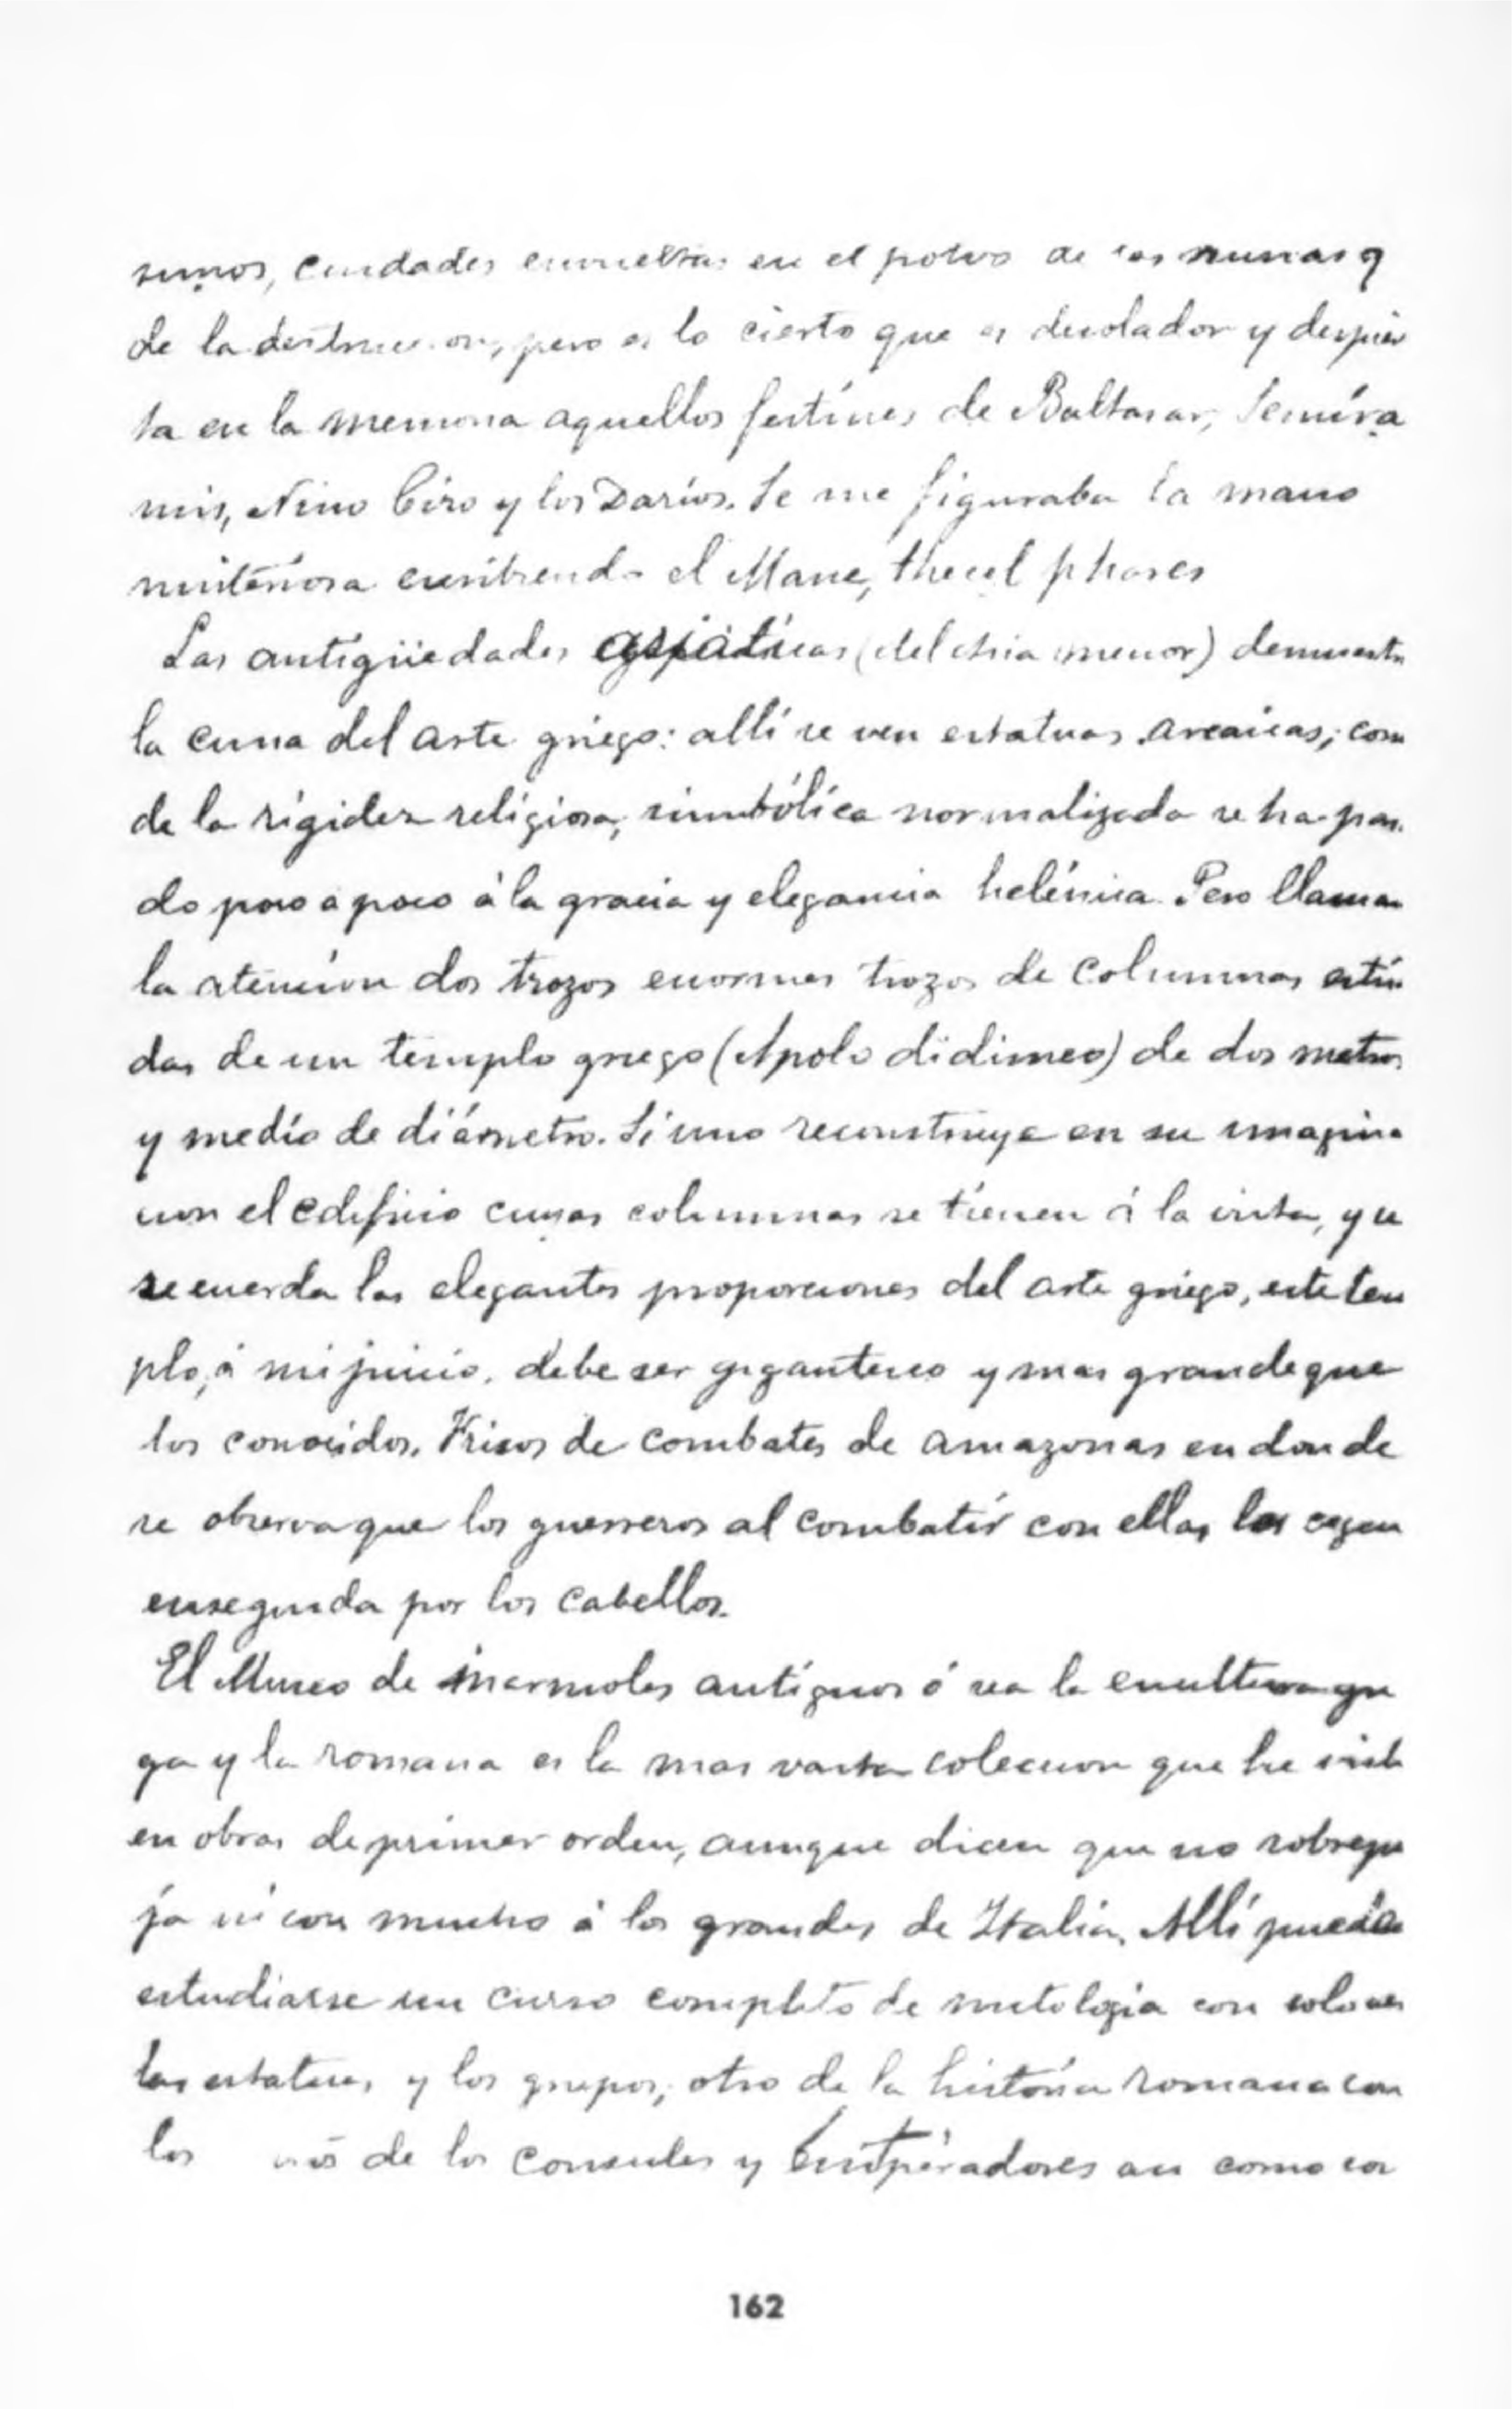 sumos, ciudades envueltas en el polvo de las ruinas y
de la destruccion, pero es lo cierto que es desolador y despier
ta en la memoria aquellos festines de Baltasar, Semíra
mis, Nino Ciro y los Daríos. Se me figuraba la mano
misteriosa escribiendo el Mane, thecel phares
Las antigüedades asiáticas (del Asia menor) demuestra
la cuna del arte griego: allí se ven estatuas arcaicas; como
de la rigidez religiosa, simbólica normalizada se ha pasa
do poco a poco á la gracia y elegancia helénica. Pero llaman
la atencion dos trozos enormes trozos de columnas estria
das de un templo griego (Apolo didimeo) de dos metros
y medio de diámetro. Si uno reconstruye en su imagina
cion el edificio cuyas columnas se tienen á la vista, y se
recuerda las elegantes proporciones del arte griego, este tem
plo, á mi juicio, debe ser gigantesco y mas grande que
los conocidos. Frisos de combates de amazonas en donde
se observa que los guerreros al combatir con ellas las cogen
enseguida por los cabellos.
El Museo de marmoles antiguos ó sea la escultura grie
ga y la romana es la mas vasta coleccion que he visto
en obras de primer orden, aunque dicen que no sobrepu
ja ni con mucho á los grandes de Italia. Allí puede
estudiarse un curso completo de mitologia con solo ver
las estatuas y los grupos; otro de la historia romana con
los de los consules y Emperadores asi como con
162